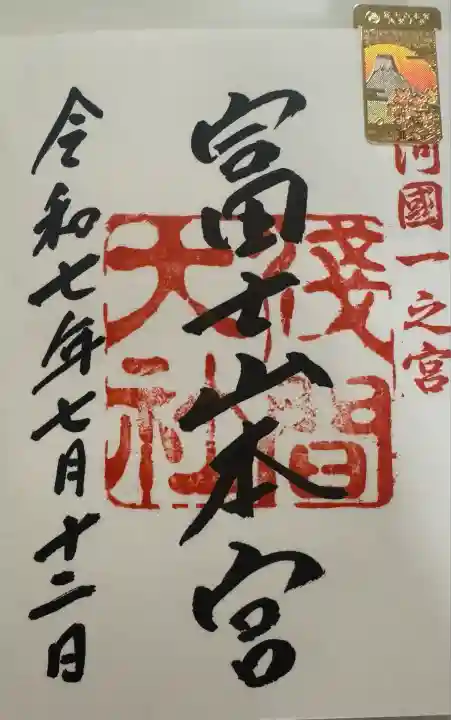 河國一之宮
富士山本宮
淺間
大社
令和七年七月十二日